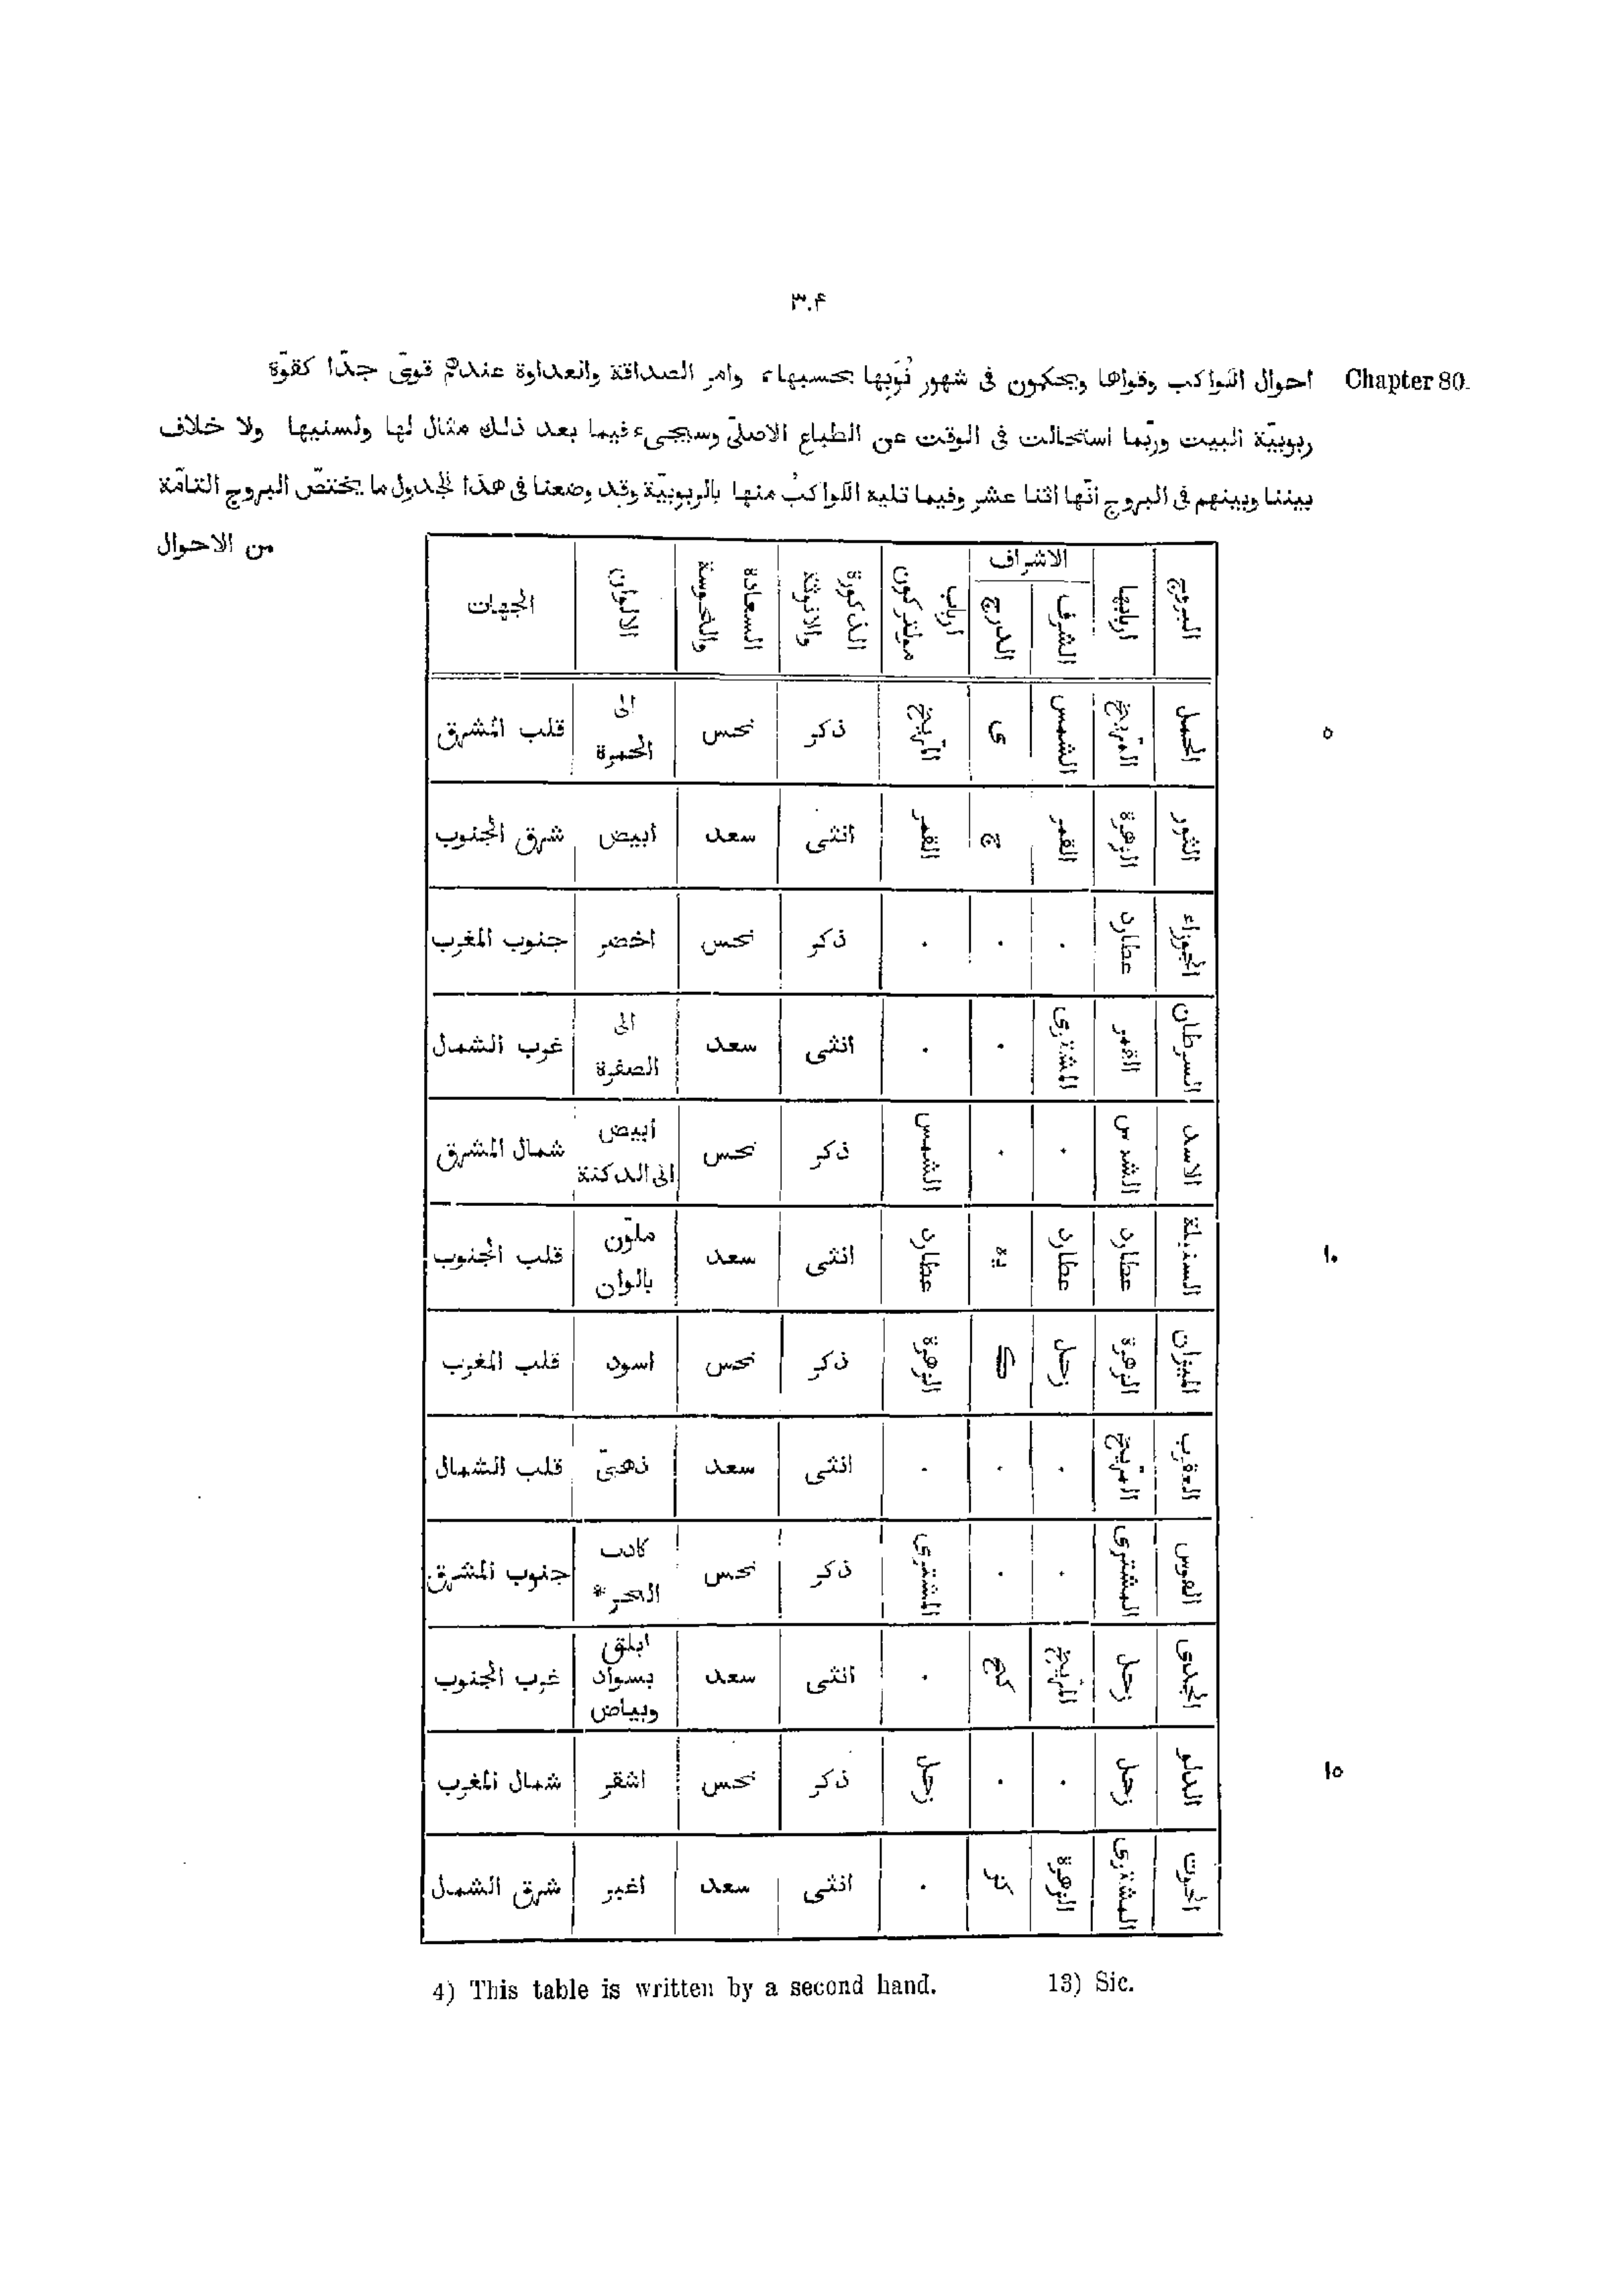 ٣٠۴
Chapter 80.
احوال الكواكب وقواها ويحكمون فى شهور نُوَبِها بحسبها، وامر الصداقة والعداوة عندهم قوىّ جدّا كقوّة
ربوبيّة البيت وربّما استحالت فى الوقت عن الطباع الاصلىّ وسيجىء فيما بعد ذلك مثال لها ولسنيها ولا خلاف
بيننا وبينهم فى البروج انّها اثنا عشر وفيما تليه الكواكبُ منها بالربوبيّة وقد وضعنا فى هذا الجدول ما يختصّ البروج التامّة
من الاحوال
البروج | اربابها | الاشراف: الشرف | الدرج | ارباب مولتركون | الذكورة والانوثة | السعادة والنحوسة | الالوان | الجهات
الحمل | المرّيخ | الشمس | ى | المرّيخ | ذكر | نحس | الى الحمرة | قلب المشرق
٥
الثور | الزهرة | القمر | ج | القمر | انثى | سعد | ابيض | شرق الجنوب
الجوزاء | عطارد | . | . | . | ذكر | نحس | اخضر | جنوب المغرب
السرطان | القمر | المشترى | . | . | انثى | سعد | الى الصفرة | غرب الشمال
الاسد | الشمس | . | . | الشمس | ذكر | نحس | ابيض الى الدكنة | شمال المشرق
السنبلة | عطارد | عطارد | يه | عطارد | انثى | سعد | ملوّن بالوان | قلب الجنوب
١٠
الميزان | الزهرة | زحل | ك | الزهرة | ذكر | نحس | اسود | قلب المغرب
العقرب | المرّيخ | . | . | . | انثى | سعد | ذهبىّ | قلب الشمال
القوس | المشترى | . | . | المشترى | ذكر | نحس | كادب * | جنوب المشرق
الجدى | زحل | المرّيخ | كح | . | انثى | سعد | ابلق بسواد وبياض | غرب الجنوب
الدلو | زحل | . | . | زحل | ذكر | نحس | اشقر | شمال المغرب
١٥
الحوت | المشترى | الزهرة | كز | . | انثى | سعد | اغبر | شرق الشمال
4) This table is written by a second hand. 13) Sic.